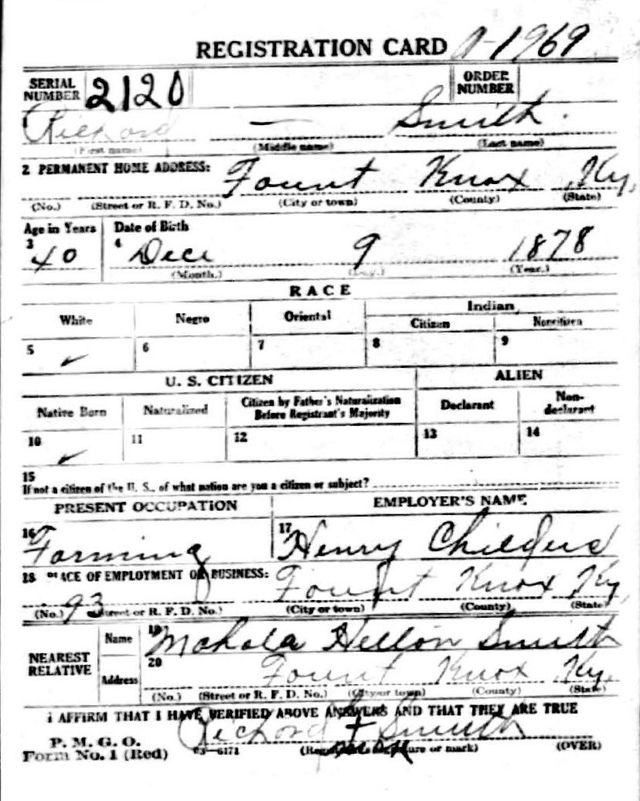 REGISTRATION CARD A-1969
SERIAL NUMBER 2120 ORDER NUMBER
Richard — Smith.
(First name) (Middle name) (Last name)
2 PERMANENT HOME ADDRESS: Fount Knox Ky.
(No.) (Street or R. F. D. No.) (City or town) (County) (State)
Age in Years Date of Birth
3 40 4 Dec 9 1878
(Month.) (Day.) (Year.)
RACE
White Negro Oriental Indian
Citizen Noncitizen
5 ✓ 6 7 8 9
U. S. CITIZEN ALIEN
Native Born Naturalized Citizen by Father's Naturalization Before Registrant's Majority Declarant Non-declarant
10 ✓ 11 12 13 14
15
If not a citizen of the U. S., of what nation are you a citizen or subject?
PRESENT OCCUPATION EMPLOYER'S NAME
16 Farming 17 Henry Childers
18 PLACE OF EMPLOYMENT OR BUSINESS: Fount Knox Ky.
(No.) (Street or R. F. D. No.) (City or town) (County) (State)
NEAREST RELATIVE Name 19 Mahala Hellon Smith
Address 20 Fount Knox Ky.
(No.) (Street or R. F. D. No.) (City or town) (County) (State)
I AFFIRM THAT I HAVE VERIFIED ABOVE ANSWERS AND THAT THEY ARE TRUE
P. M. G. O.
Form No. 1 (Red) 03—6171 Richard + Smith
(Registrant's signature or mark) (OVER)
mark